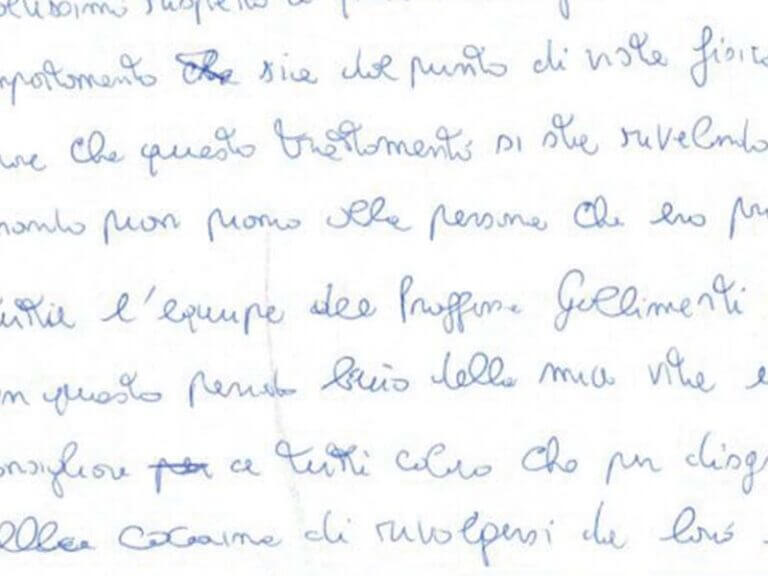 rispetto a
mportamento che sia dal punto di vista fisico
che questo trattamento si sta rivelando
pian piano alla persona che ero
tutta l'equipe del Proffssre Gallimberti
in questo periodo buio della mia vita e
onsigliare per a tutti coloro che per disgr
alla cocaina di rivolgersi da loro